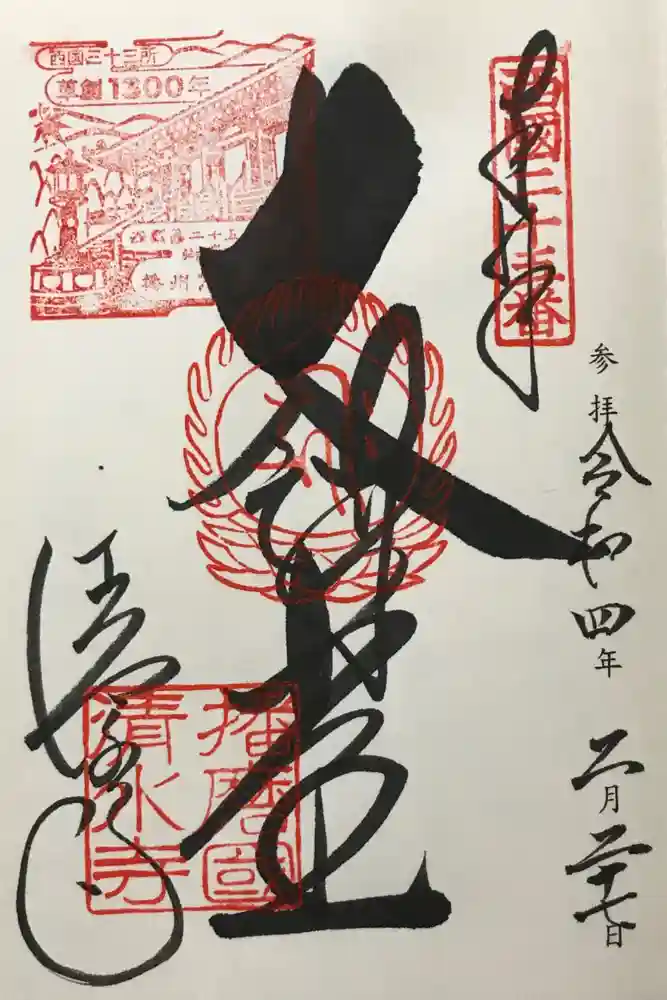 奉拝
西國二十五番
参拝 令和四年 二月二十七日
大講堂
播磨國
清水寺
清水寺
西国三十三所
草創1300年
西国第二十五
播州